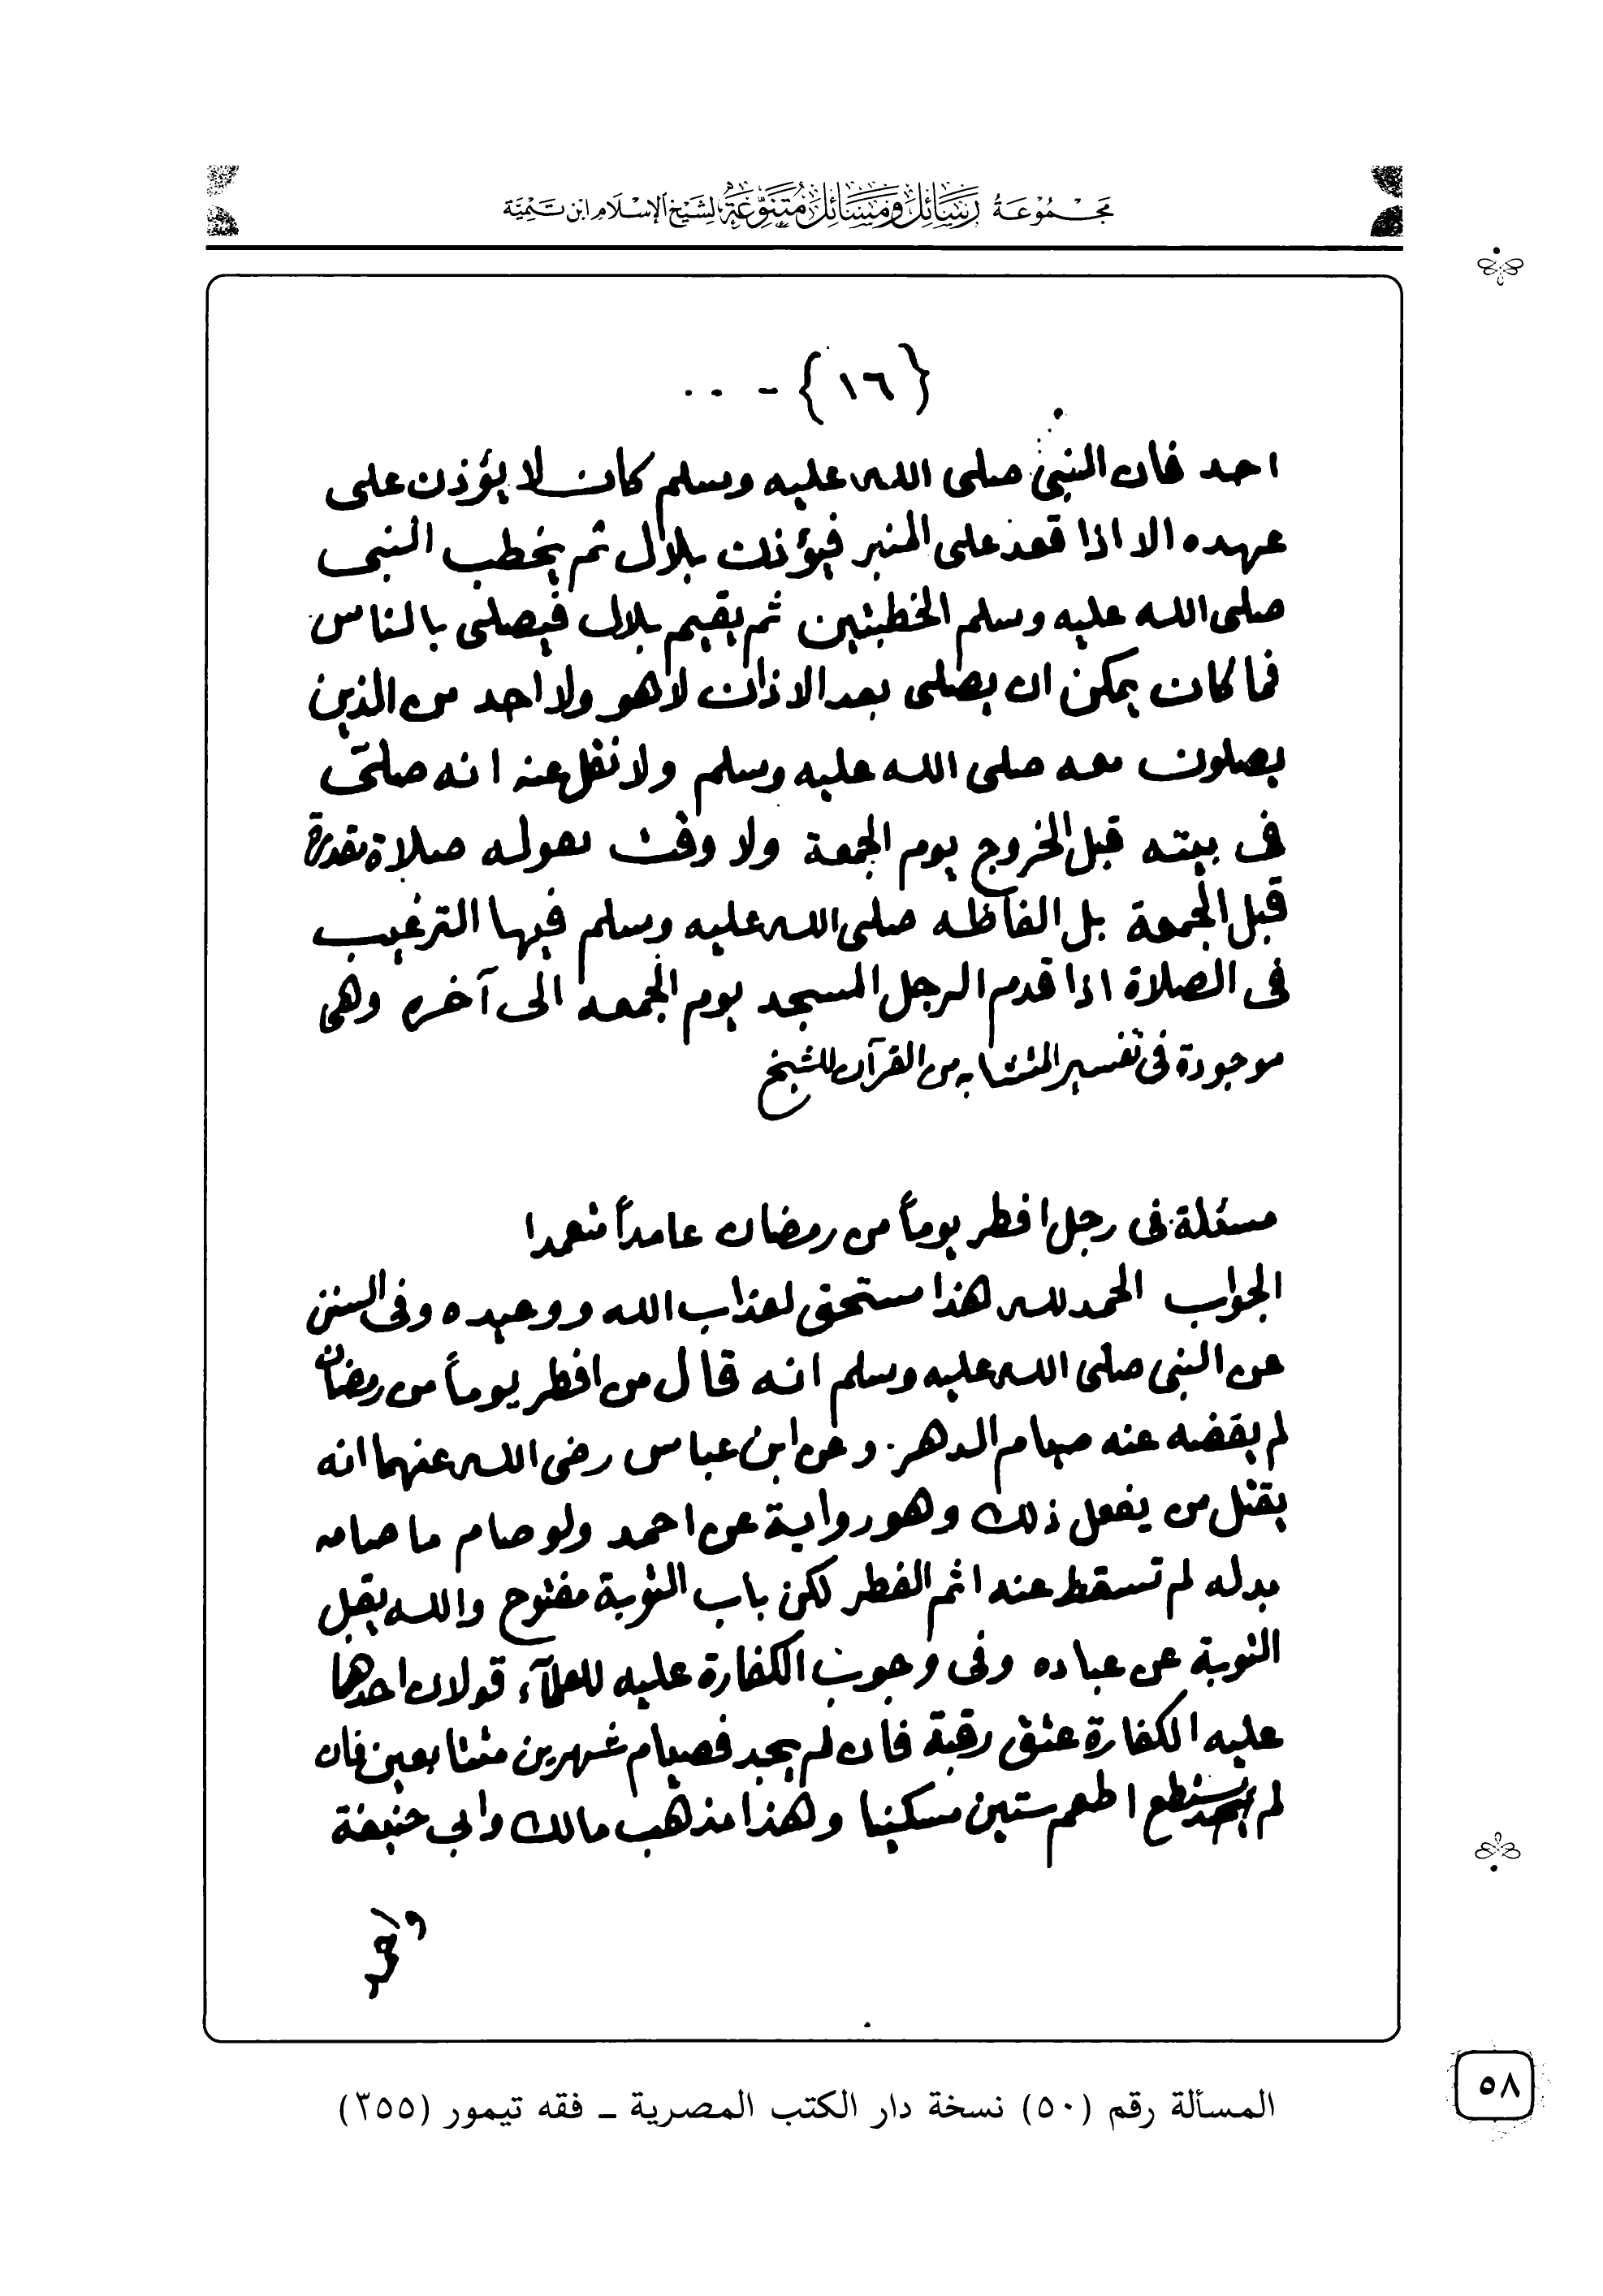 مجموعة رسائل ومسائل متنوعة لشيخ الإسلام ابن تيمية
{١٦} - ..
احد فان النبي صلى الله عليه وسلم كان لا يؤذن على
عهده الا اذا قعد على المنبر فيؤذن بلال ثم يخطب النبى
صلى الله عليه وسلم الخطبتين ثم يقيم بلال فيصلى بالناس
فما كان يمكن ان يصلى بعد الاذان لا هو ولا احد من الذين
يصلون معه صلى الله عليه وسلم ولا نقل عنه انه صلى
فى بيته قبل الخروج يوم الجمعة ولا وقت بقوله صلاة مقدرة
قبل الجمعة بل الفاظه صلى الله عليه وسلم فيها الترغيب
فى الصلاة اذا قدم الرجل المسجد يوم الجمعه الى آخره وهى
موجودة فى تفسير المتشابه من القرآن للشيخ
مسئلة فى رجل افطر يوماً من رمضان عامداً متعمدا
الجواب الحمد لله هذا مستحق لعذاب الله ووعيده وفى السنن
عن النبى صلى الله عليه وسلم انه قال من افطر يوماً من رمضان
لم يقضه عنه صيام الدهر. وعن ابن عباس رضى الله عنهما انه
يقتل من يفعل ذلك وهو رواية عن احمد ولو صام ما صامه
بدله لم تسقط عنه اثم الفطر لكن باب التوبة مفتوح والله يقبل
التوبة عن عباده وفى وجوب الكفارة عليه للعلمآء قولان احدهما
عليه الكفارة عتق رقبة فان لم يجد فصيام شهرين متتابعين فان
لم يستطع اطعم ستين مسكينا وهذا مذهب مالك وابي حنيفة
المسألة رقم (٥٠) نسخة دار الكتب المصرية ـ فقه تيمور (٢٥٥)
٥٨